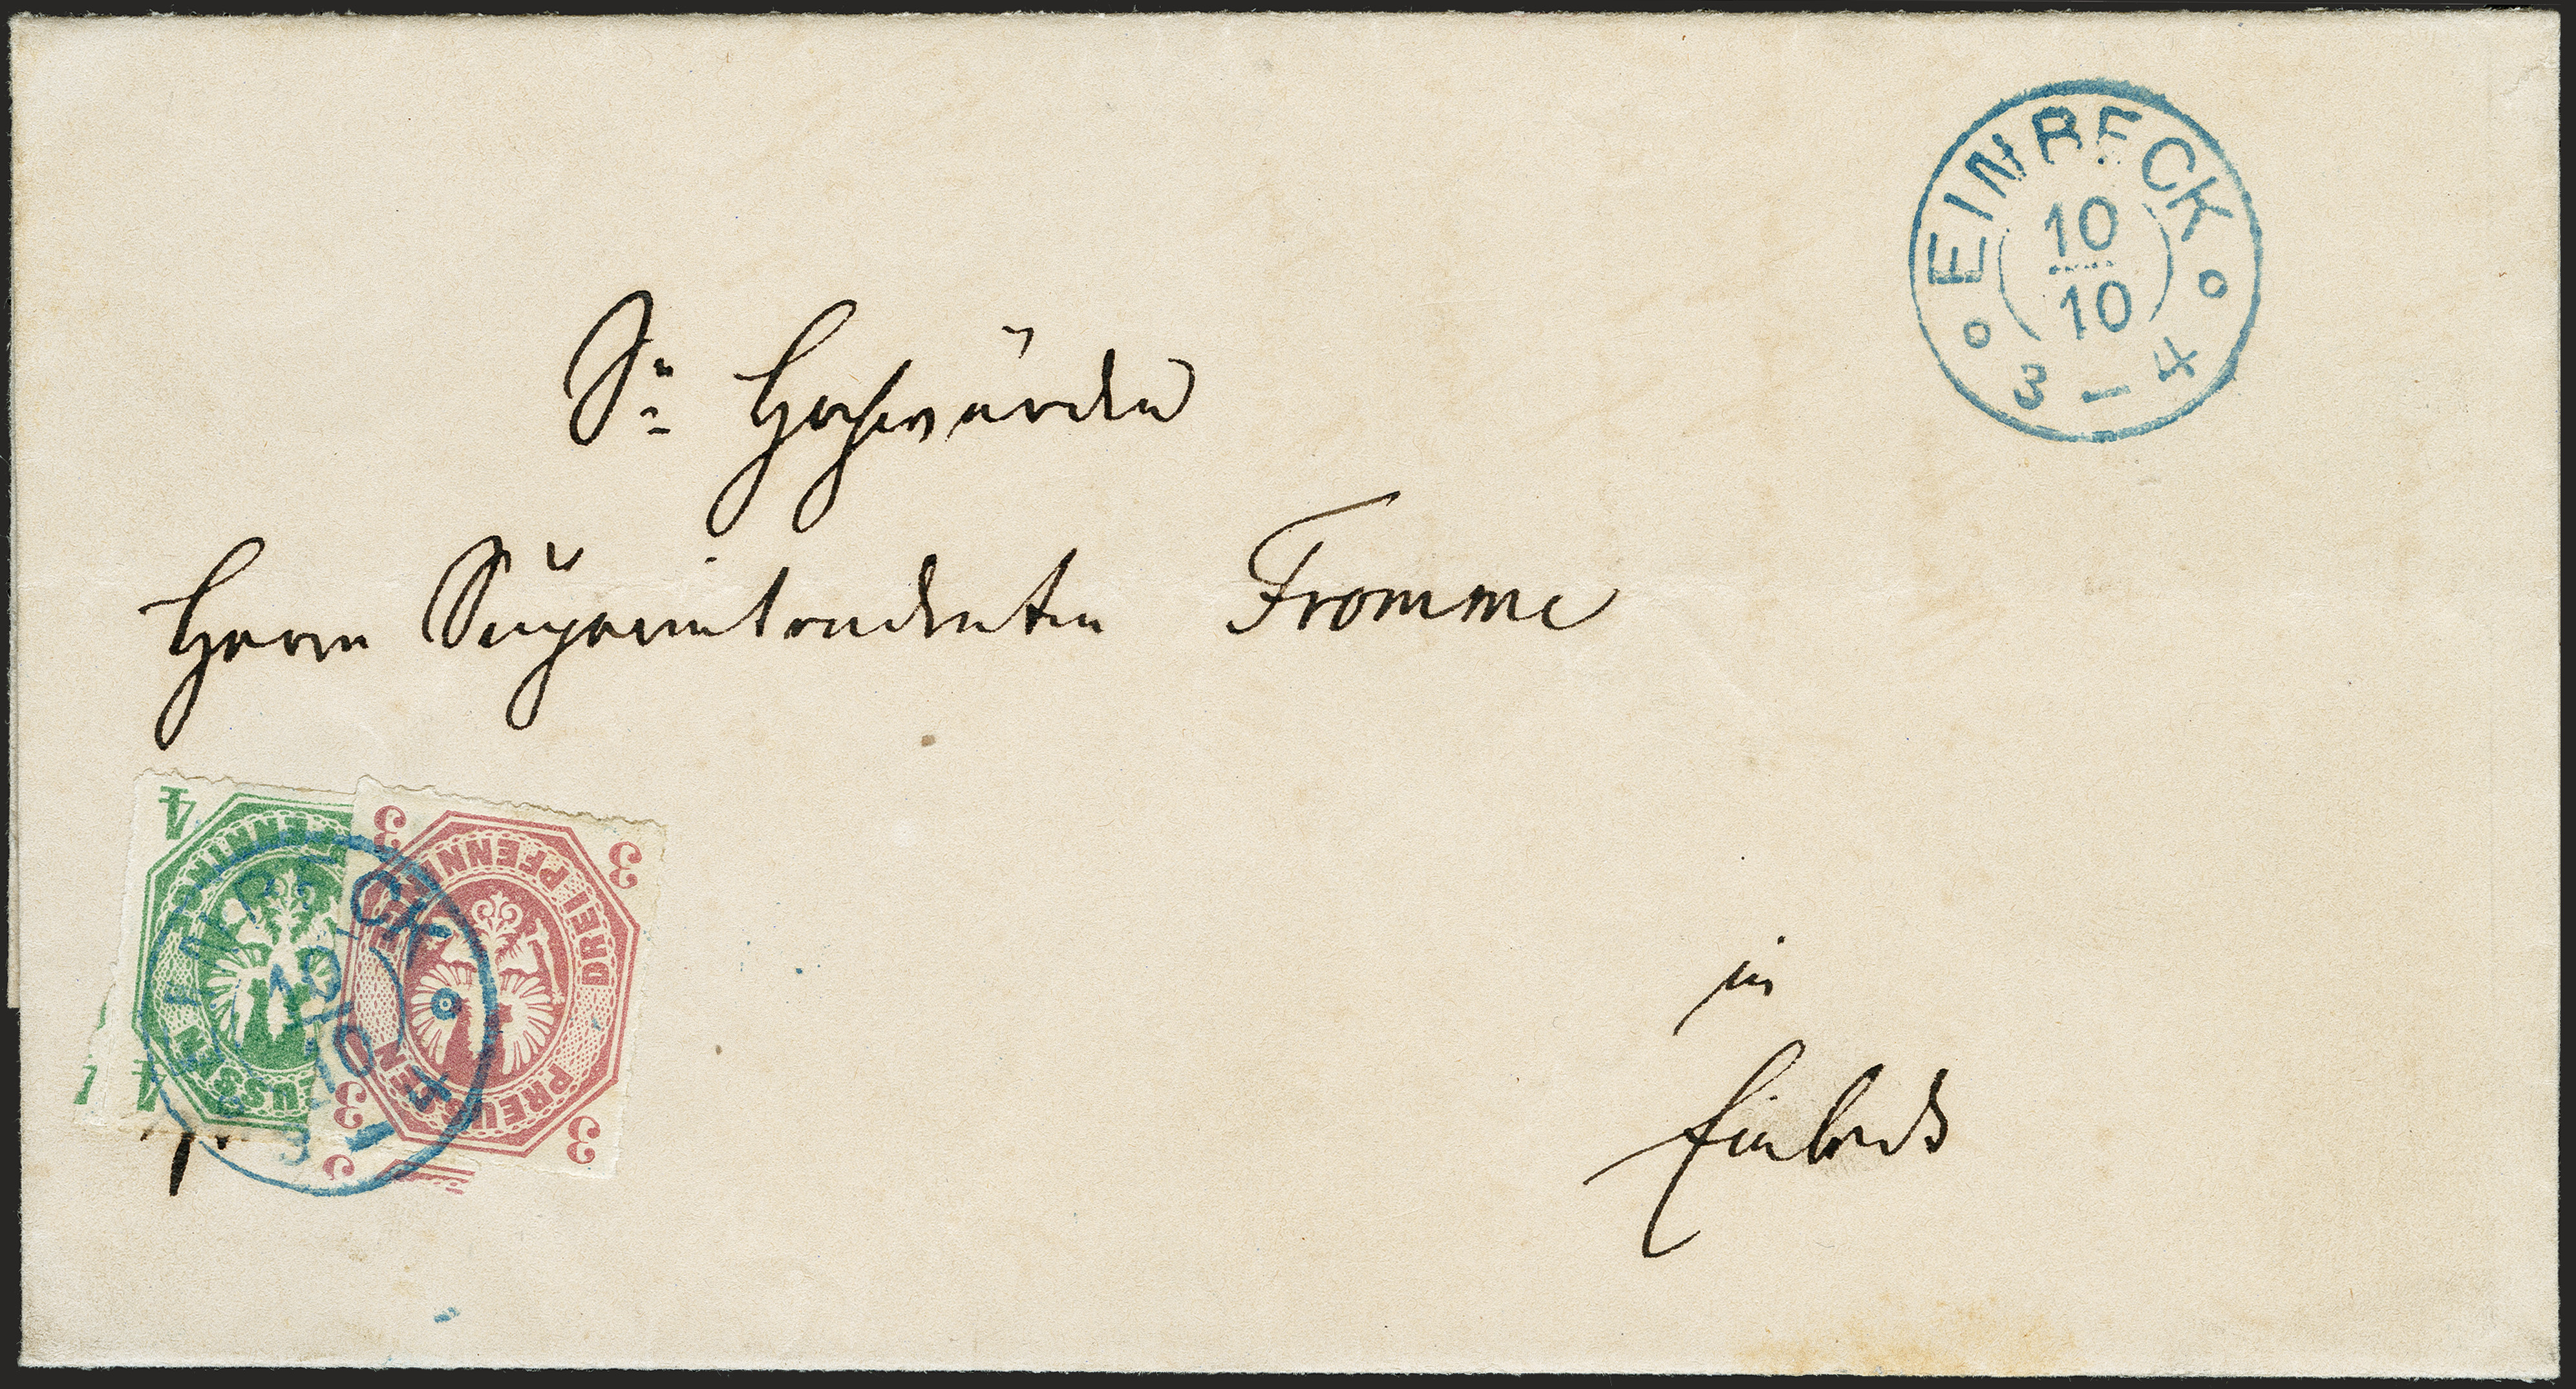 EINBECK
10
10
3 – 4
Sr. Hochwürden
Herrn Superintendenten Fromme
in
Einbeck
4
3
3
DREI PFENNINGE
PREUSSEN
3
3
4
EINBECK
10
10
3 – 4